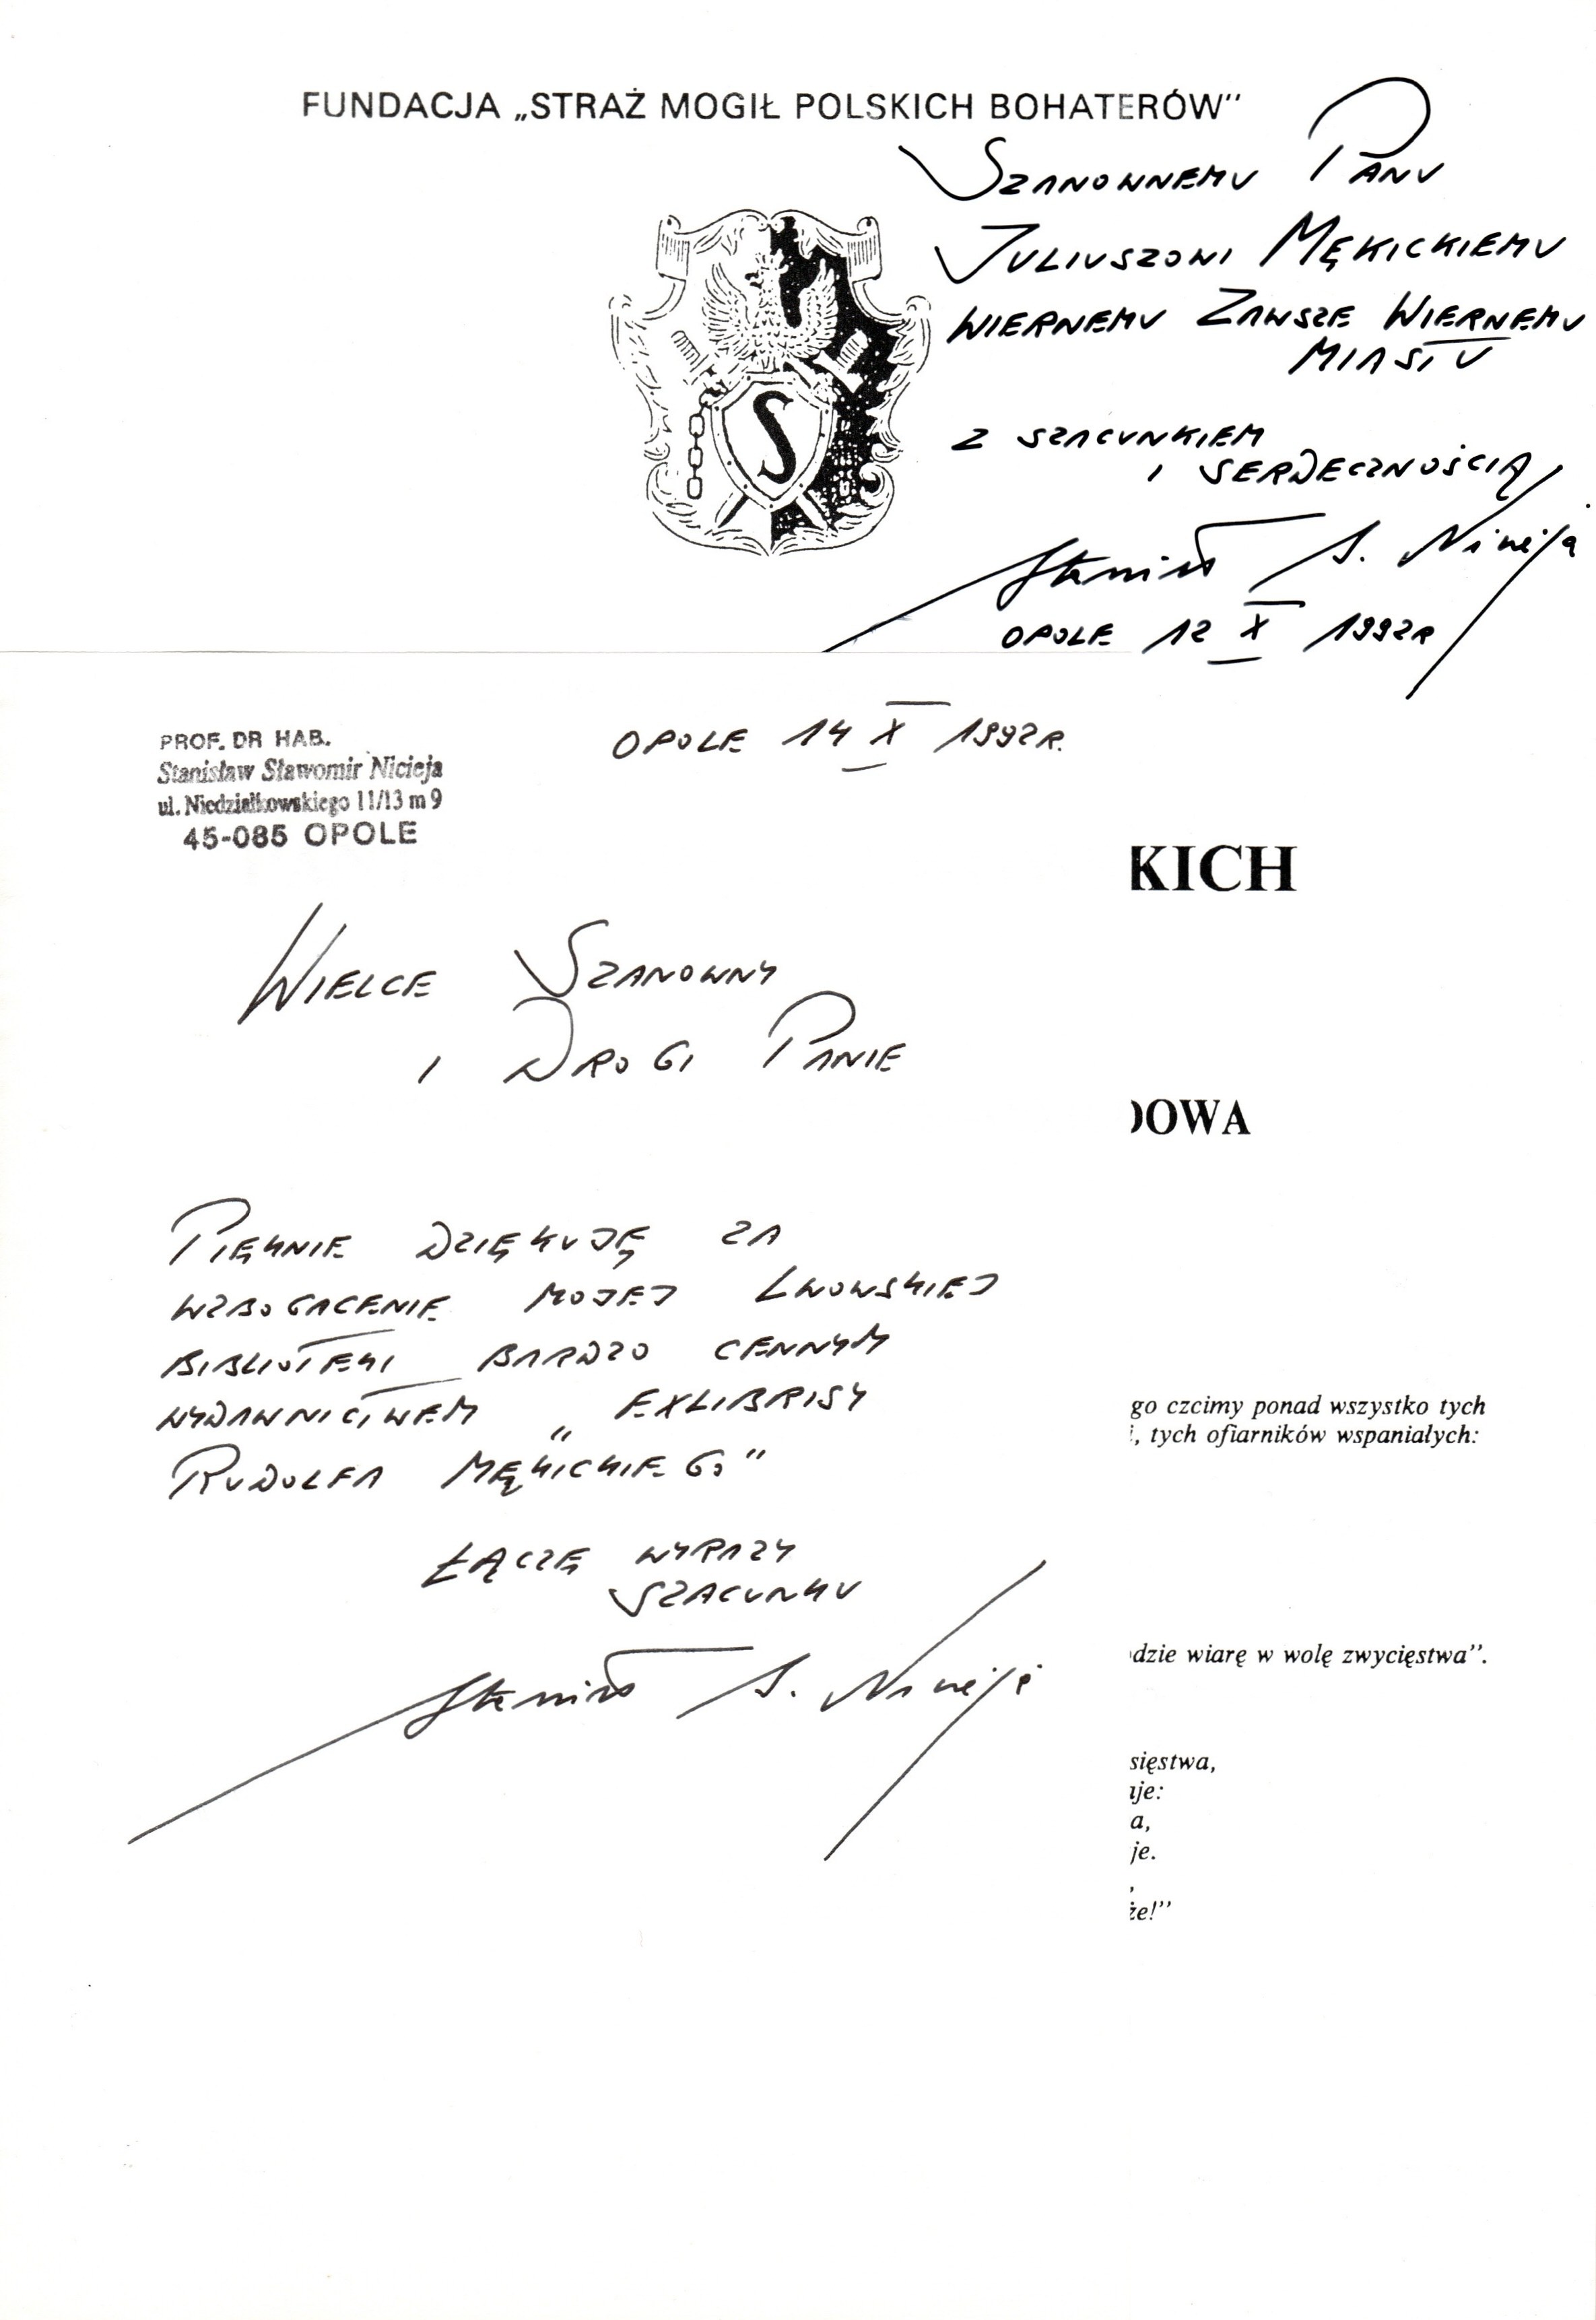 FUNDACJA „STRAŻ MOGIŁ POLSKICH BOHATERÓW”
SZANOWNEMU PANU
JULIUSZOWI MĘKICKIEMU
WIERNEMU ZAWSZE WIERNEMU
MIASTU
Z SZACUNKIEM
I SERDECZNOŚCIĄ
S
Stanisław S. Nicieja
OPOLE 12 X 1992R
PROF. DR HAB.
Stanisław Sławomir Nicieja
ul. Niedziałkowskiego 11/13 m 9
45-085 OPOLE
OPOLE 14 X 1992R.
KICH
WIELCE SZANOWNY
I DROGI PANIE
OWA
PIĘKNIE DZIĘKUJĘ ZA
WZBOGACENIE MOJEJ LWOWSKIEJ
BIBLIOTEKI BARDZO CENNYM
WYDAWNICTWEM „EXLIBRISY
RUDOLFA MĘKICKIEGO”
go czcimy ponad wszystko tych
, tych ofiarników wspaniałych:
ŁĄCZĘ WYRAZY
SZACUNKU
Stanisław S. Nicieja
dzie wiarę w wolę zwycięstwa”.
sięstwa,
uje:
a,
je.
,
że!”